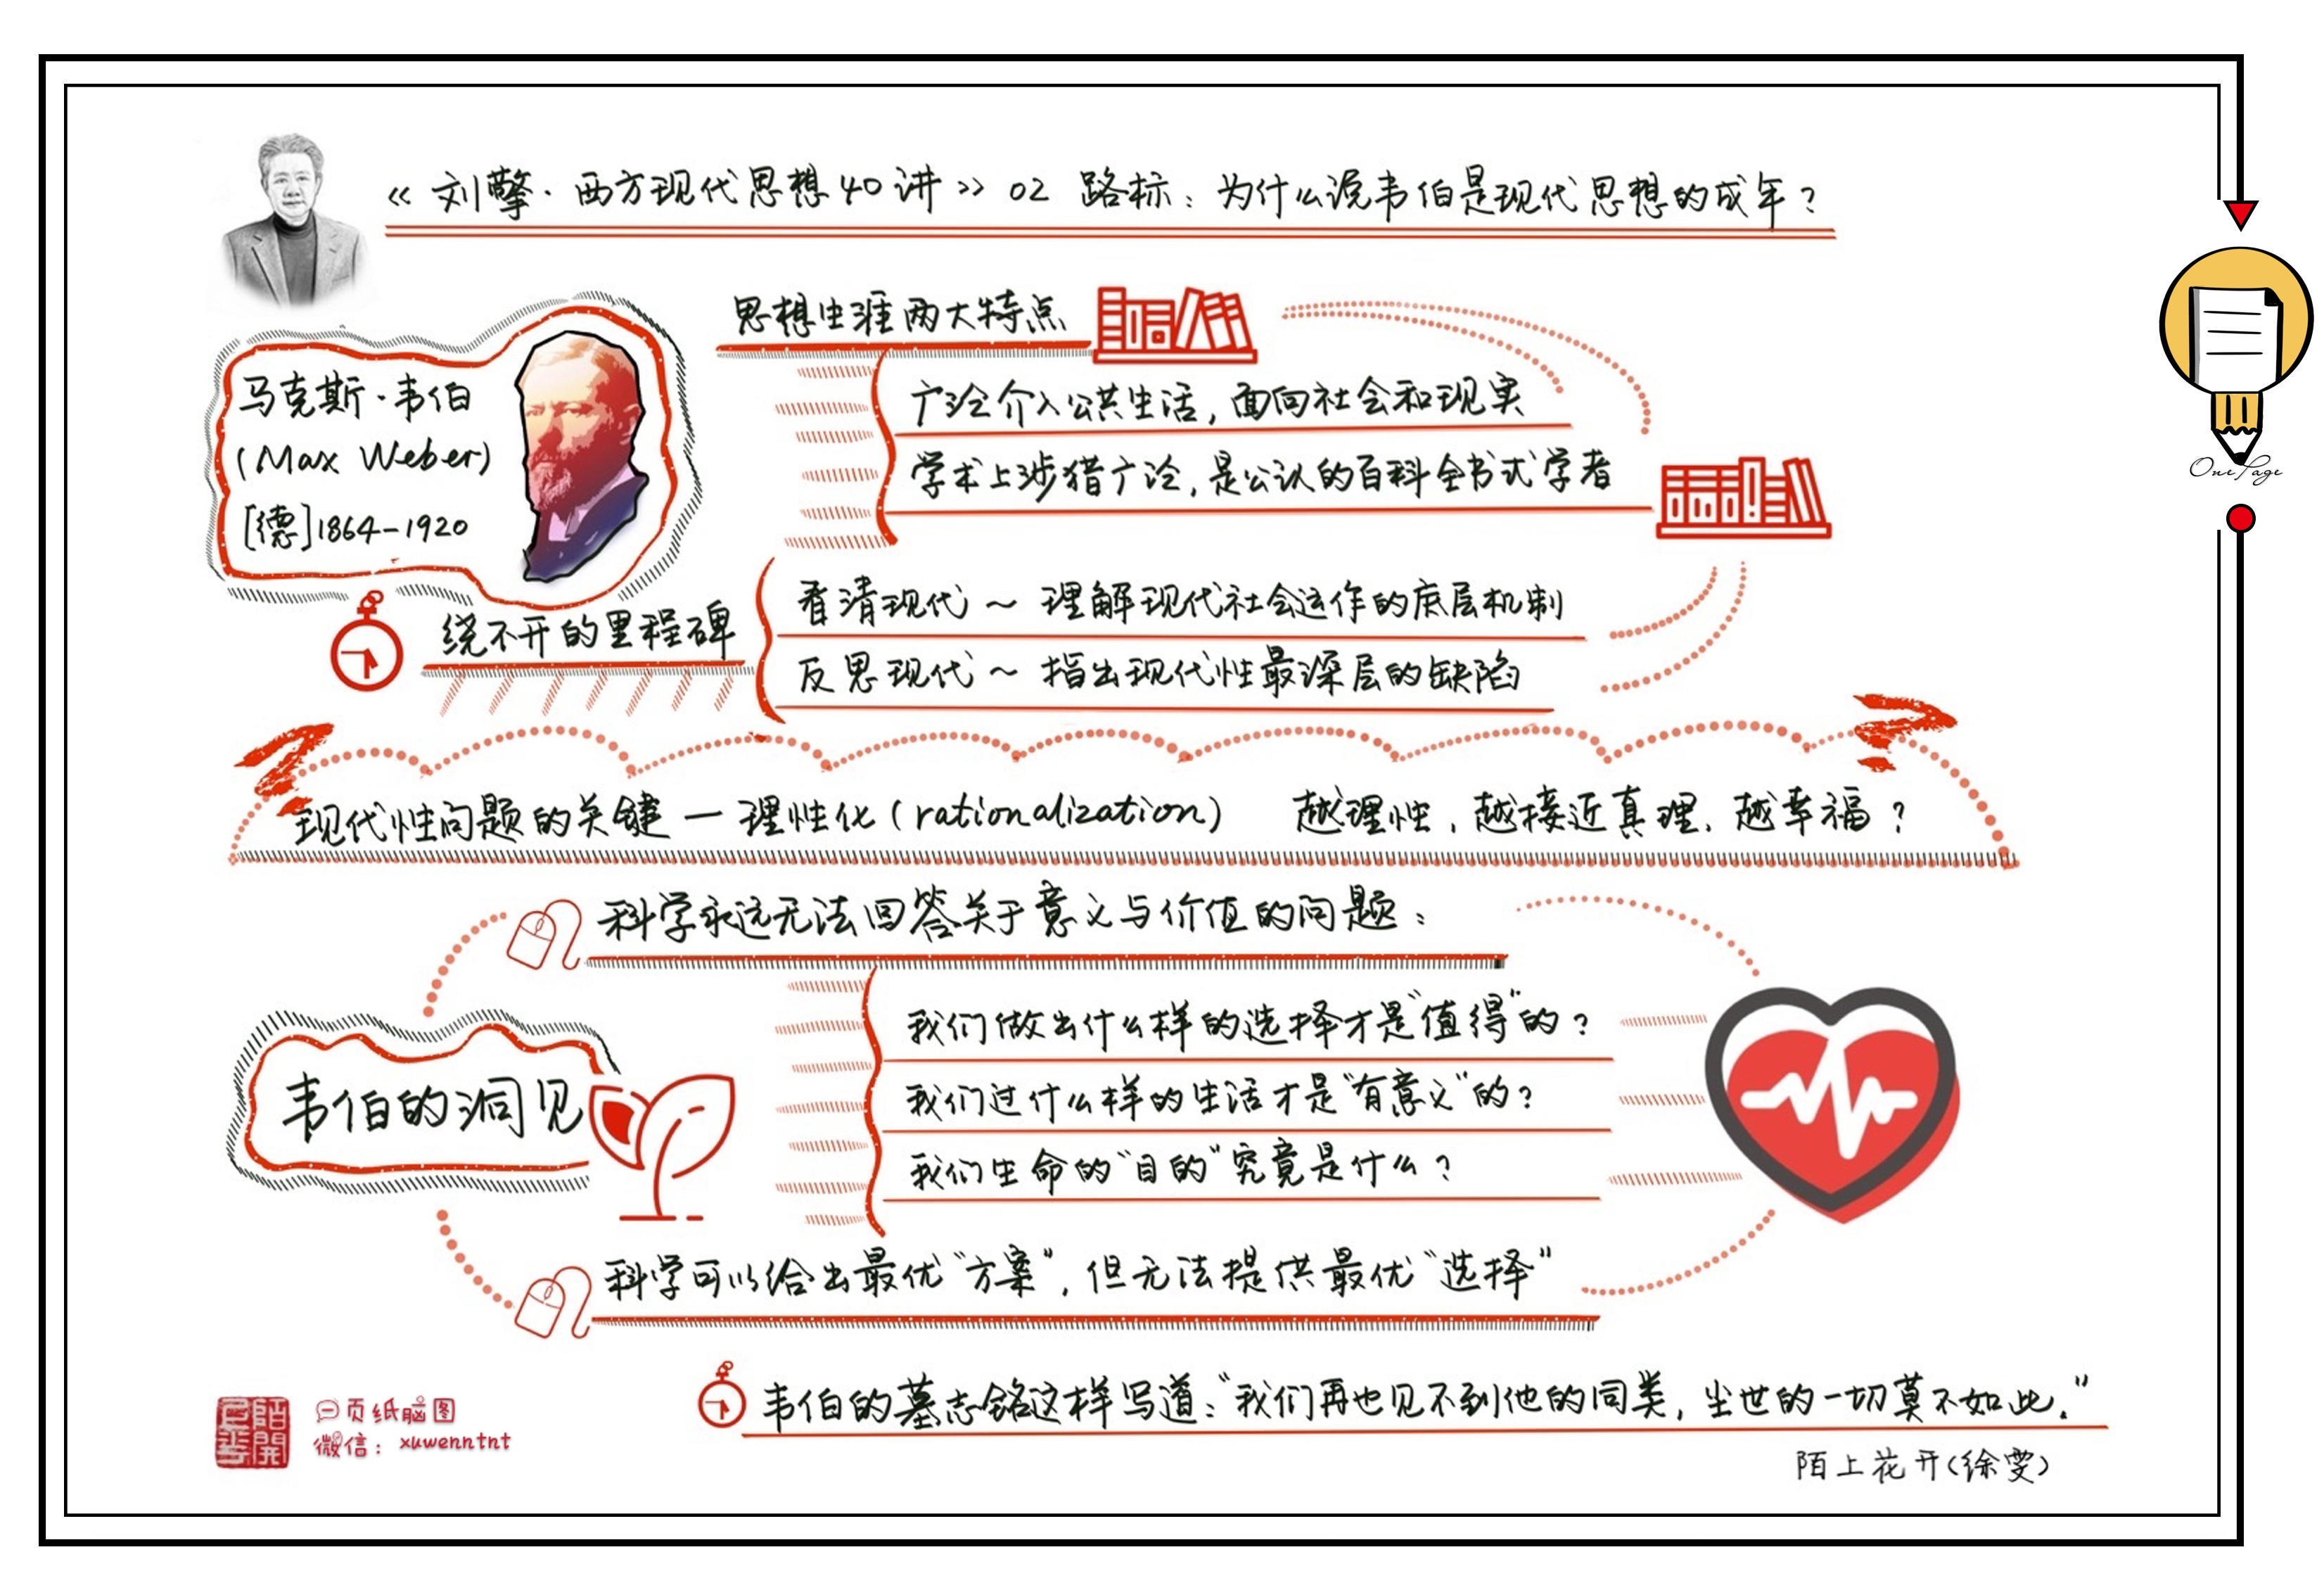 《刘擎·西方现代思想40讲》02 路标：为什么说韦伯是现代思想的成年？
思想生涯两大特点
广泛介入公共生活，面向社会和现实
学术上涉猎广泛，是公认的百科全书式学者
马克斯·韦伯
(Max Weber)
[德]1864-1920
绕不开的里程碑
看清现代～理解现代社会运作的底层机制
反思现代～指出现代性最深层的缺陷
现代性问题的关键—理性化(rationalization) 越理性，越接近真理、越幸福？
韦伯的洞见
科学永远无法回答关于意义与价值的问题：
我们做出什么样的选择才是"值得"的？
我们过什么样的生活才是"有意义"的？
我们生命的"目的"究竟是什么？
科学可以给出最优"方案"，但无法提供最优"选择"
韦伯的墓志铭这样写道："我们再也见不到他的同类，尘世的一切莫不如此."
陌上花开(徐雯)
陌上花開
一页纸脑图
微信：xuwenntnt
OnePage